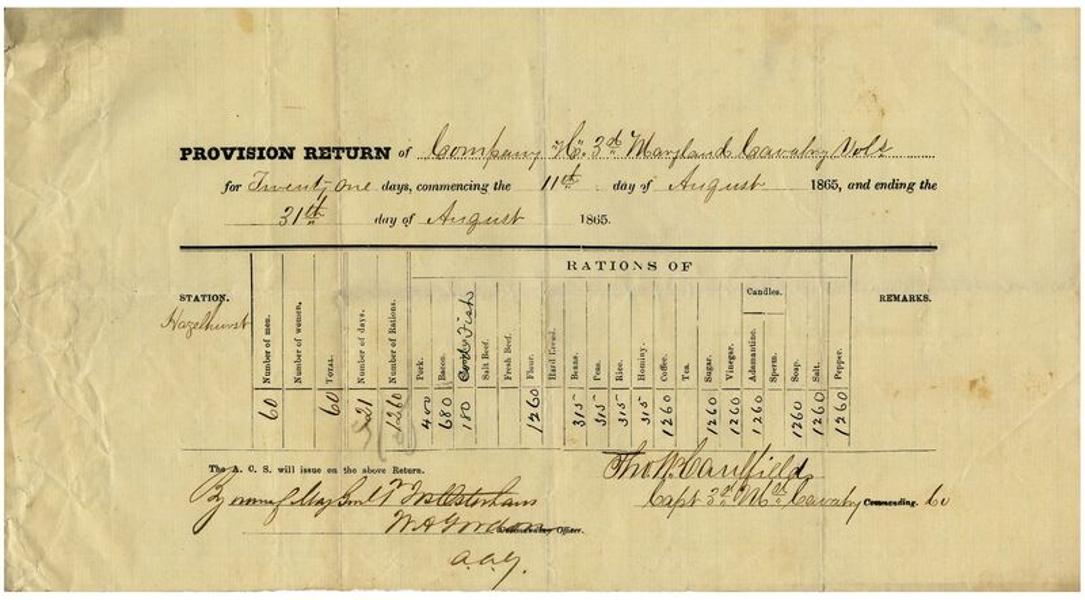 PROVISION RETURN of Company "H". 3d Maryland Cavalry Vols
for Twenty one days, commencing the 11th day of August 1865, and ending the
31th day of August 1865.
RATIONS OF
STATION.
Number of men.
Number of women.
TOTAL.
Number of days.
Number of Rations.
Pork.
Bacon.
Fish
Salt Beef.
Fresh Beef.
Flour.
Hard Bread.
Beans.
Peas.
Rice.
Hominy.
Coffee.
Tea.
Sugar.
Vinegar.
Candles.
Adamantine.
Sperm.
Soap.
Salt.
Pepper.
REMARKS.
Hazelhurst
60 60 21 1260 400 680 180 1260 315 315 315 315 1260 1260 1260 1260 1260 1260 1260
The A. C. S. will issue on the above Return.
By com of Maj Genl Osterhaus
W A Gordon
Commanding Officer.
a.a.g.
Tho H Caulfield
Capt 3d Md Cavalry Commanding. Co